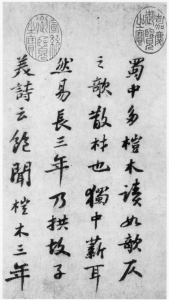 嘉慶御覽之寶
蜀中多榿木讀如欹仄
之欹散材也獨中薪耳
然易長三年乃拱故子
美詩云飽聞榿木三年